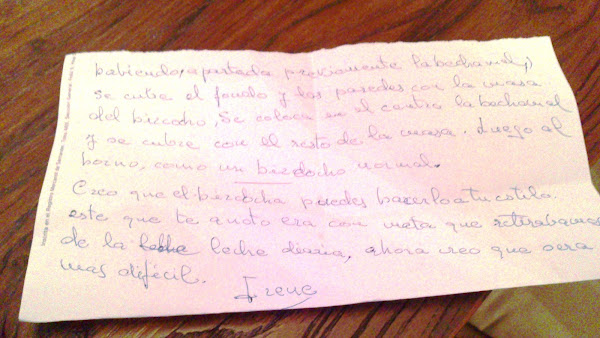 habiendo, apartada previamente la bechamel,)
se cubre el fondo y las paredes con la masa
del bizcocho, se coloca en el centro la bechamel
y se cubre con el resto de la masa. Luego al
horno, como un bizdocho normal.
Creo que el bizdocho puedes hacerlo a tu estilo.
este que te anoto era con nata que retirabamos
de la leche diaria, ahora creo que sera
mas difícil.
Irene